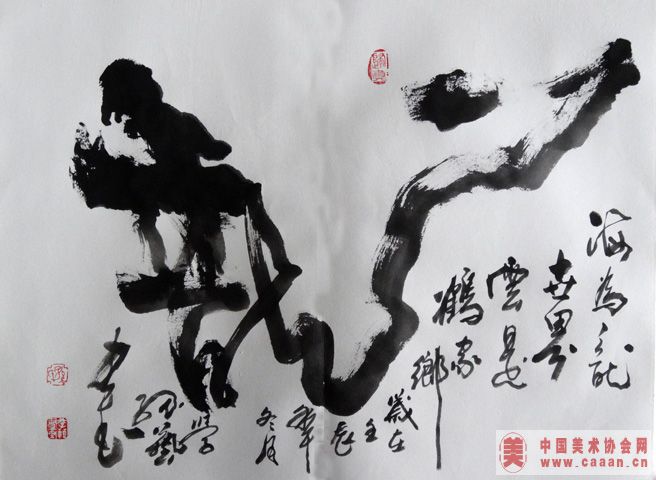 龍
海為龍
世界
雲是
鶴家
鄉
歲在
壬辰
年
冬月
美
中国美术协会网
www.caaan.cn